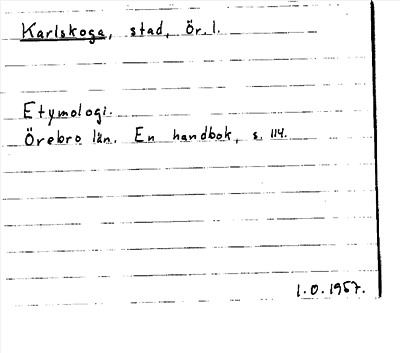 Karlskoga, stad, Ör. l.
Etymologi.
Örebro län. En handbok, s. 114.
I.O. 1957.